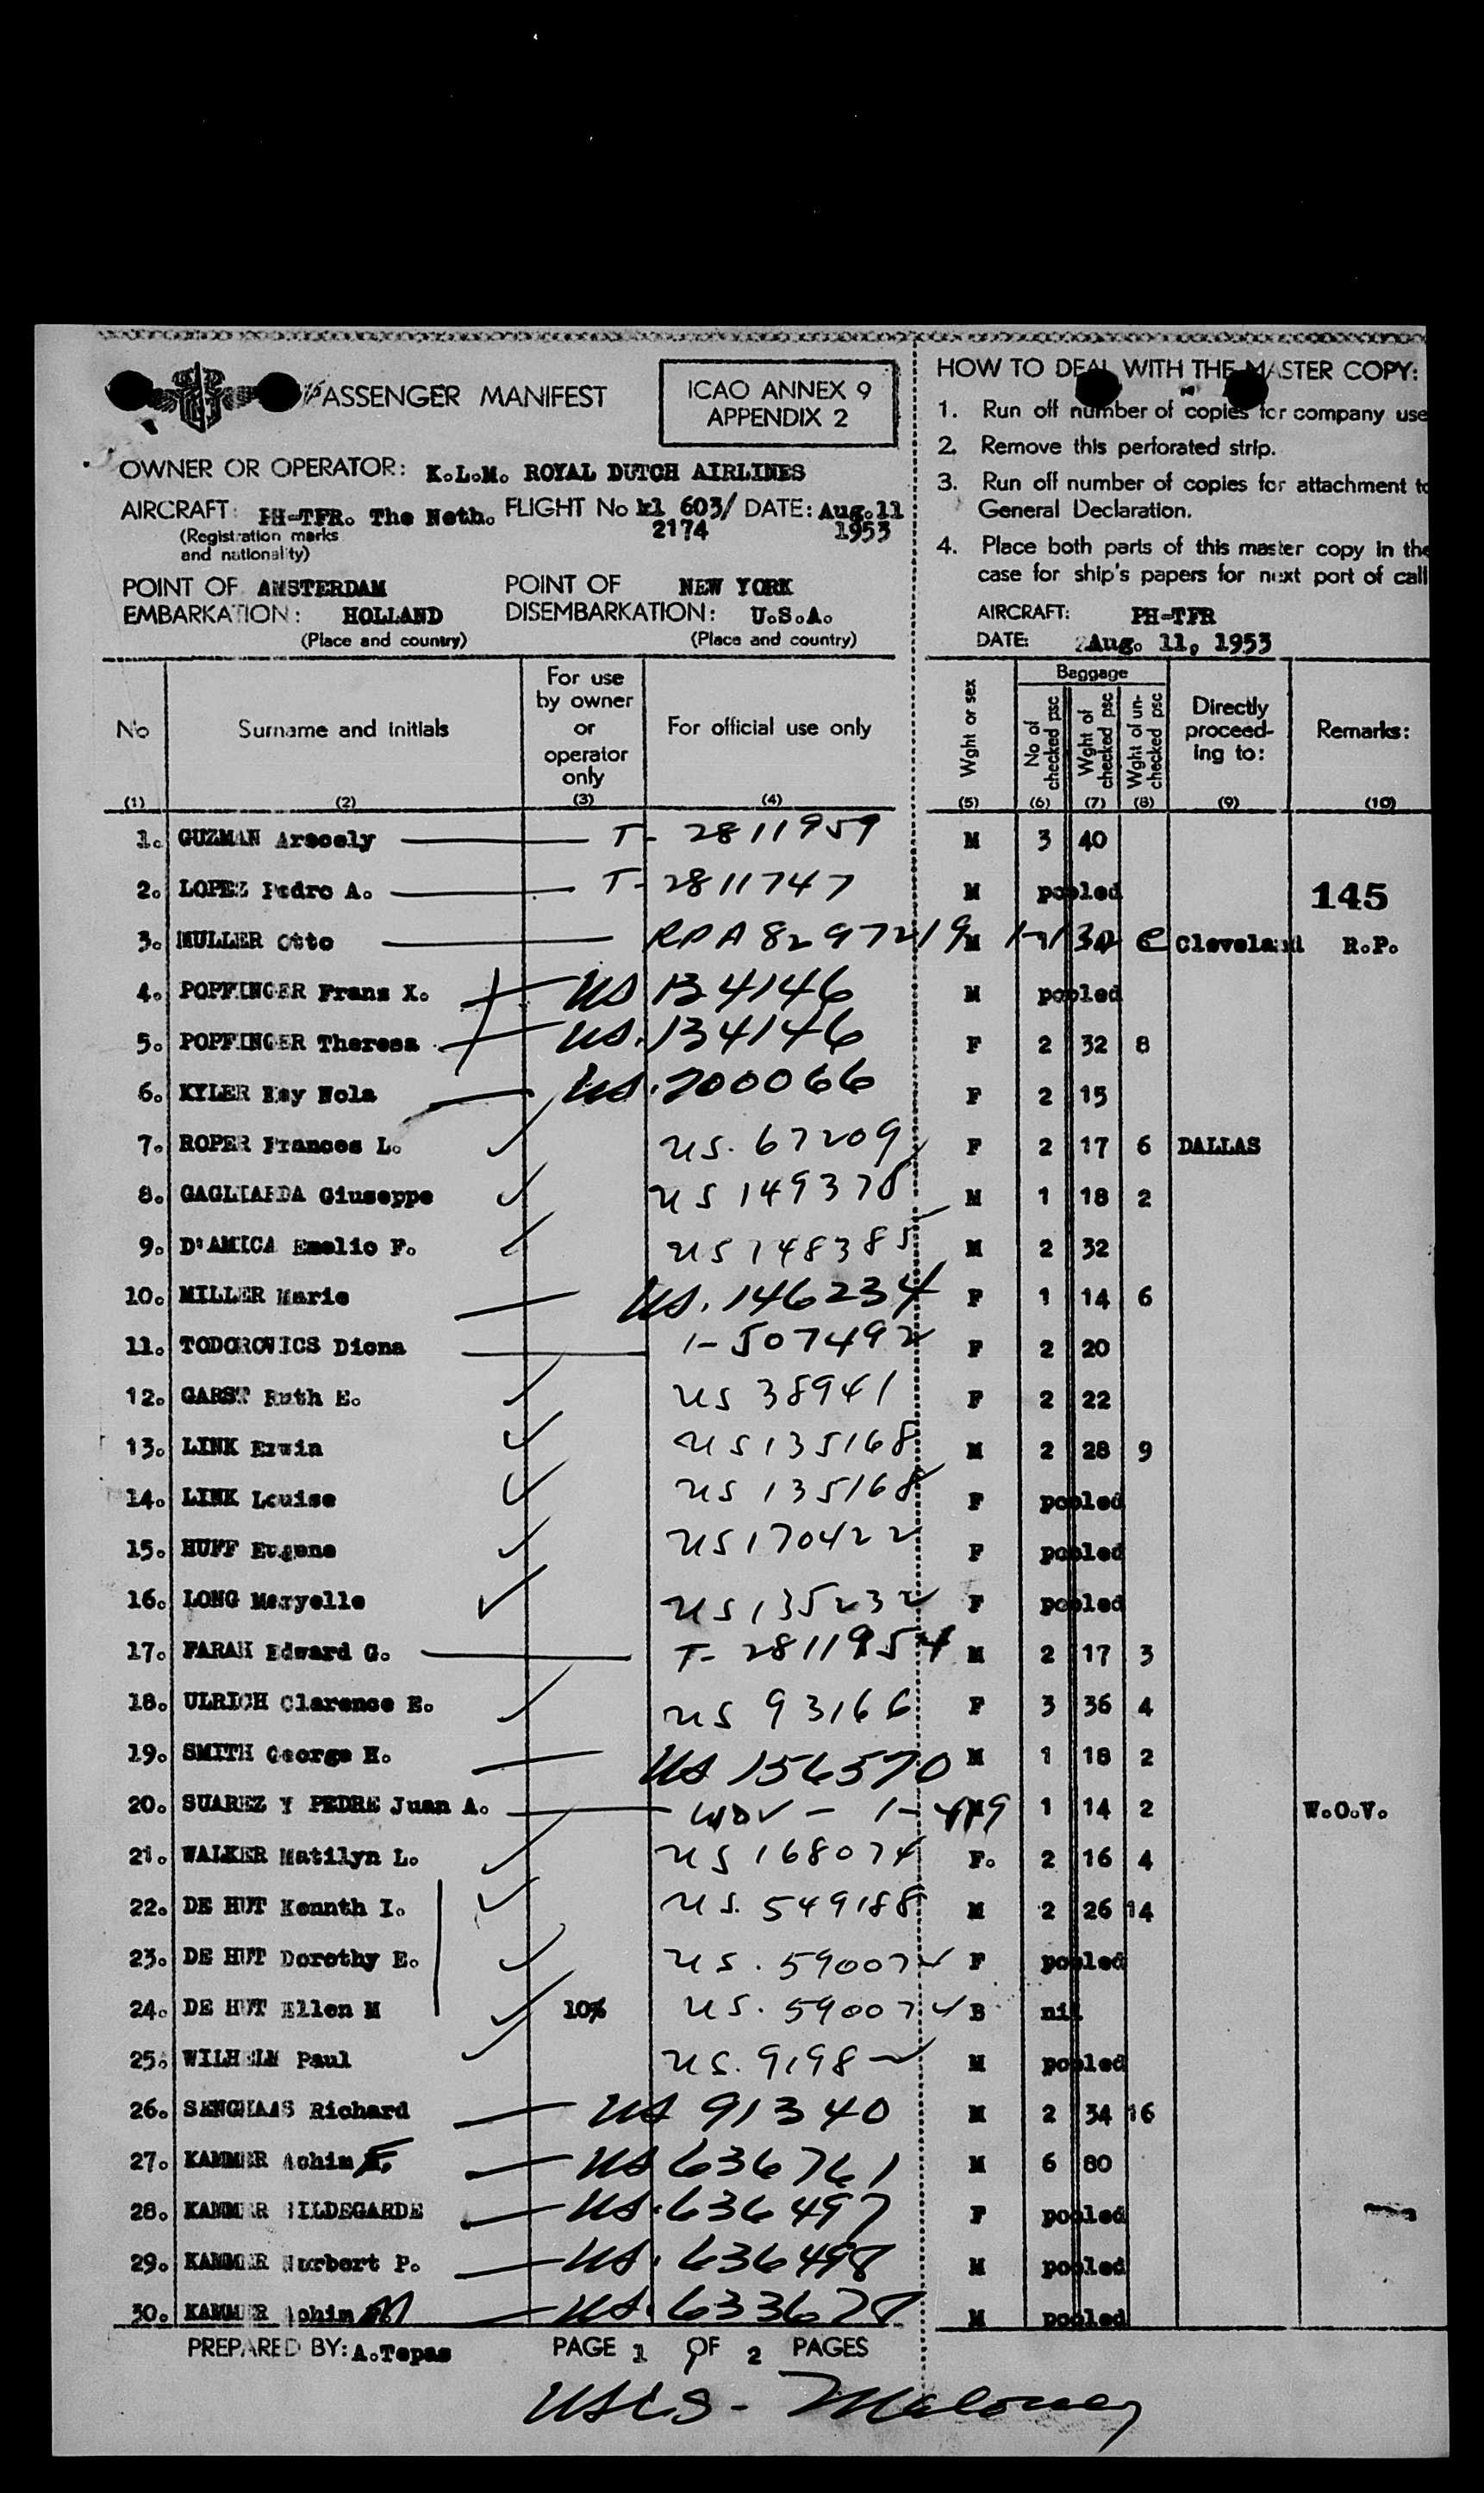 PASSENGER MANIFEST
ICAO ANNEX 9
APPENDIX 2
OWNER OR OPERATOR: K.L.M. ROYAL DUTCH AIRLINES
AIRCRAFT: PH-TFR. The Neth. FLIGHT No kl 603/ DATE: Aug.11
(Registration marks 2174 1953
and nationality)
POINT OF AMSTERDAM POINT OF NEW YORK
EMBARKATION: HOLLAND DISEMBARKATION: U.S.A.
(Place and country) (Place and country)
HOW TO DEAL WITH THE MASTER COPY:
1. Run off number of copies for company use
2. Remove this perforated strip.
3. Run off number of copies for attachment to
General Declaration.
4. Place both parts of this master copy in the
case for ship's papers for next port of call
AIRCRAFT: PH-TFR
DATE: Aug. 11, 1953
No Surname and initials For use by owner or operator only For official use only Wght or sex Baggage No of checked psc Wght of checked psc Wght of un-checked psc Directly proceed-ing to: Remarks:
(1) (2) (3) (4) (5) (6) (7) (8) (9) (10)
1. GUZMAN Aracely T- 2811959 M 3 40
2. LOPEZ Pedro A. T- 2811747 M pooled 145
3. MULLER Otto RPA 8297219 M Cleveland R.P.
4. POPFINGER Frans X. US 134146 M pooled
5. POPFINGER Theresa US. 134146 F 2 32 8
6. KYLER May Nola US. 700066 F 2 15
7. ROPER Frances L. US. 67209 F 2 17 6 DALLAS
8. GAGLIARDA Giuseppe US 149378 M 1 18 2
9. D'AMICA Emelio F. US 148385 M 2 32
10. MILLER Marie US. 146234 F 1 14 6
11. TODOROVICS Diona 1-507492 F 2 20
12. GARST Ruth E. US 38941 F 2 22
13. LINK Erwin US 135168 M 2 28 9
14. LINK Louise US 135168 F pooled
15. HUFF Eugene US 170422 F pooled
16. LONG Maryelle US 135232 F pooled
17. FARAH Edward G. T- 2811954 M 2 17 3
18. ULRICH Clarence E. US 93166 F 3 36 4
19. SMITH George H. US 156570 M 1 18 2
20. SUAREZ Y PEDRE Juan A. WOV - 1 14 2 W.O.V.
21. WALKER Matilyn L. US 168074 F. 2 16 4
22. DE HUT Kennth I. US. 549188 M 2 26 14
23. DE HUT Dorothy E. US. 590072 F pooled
24. DE HUT Ellen M 10% US. 590072 B nil
25. WILHELM Paul US. 9198 M pooled
26. SENGHAAS Richard US 91340 M 2 34 16
27. KAMMER Achim F. US 636761 M 6 80
28. KAMMER HILDEGARDE US. 636497 F pooled
29. KAMMER Norbert P. US. 636498 M pooled
30. KAMMER Achim M US. 633678 M pooled
PREPARED BY: A.Tepas PAGE 1 OF 2 PAGES
USCS - Maloney